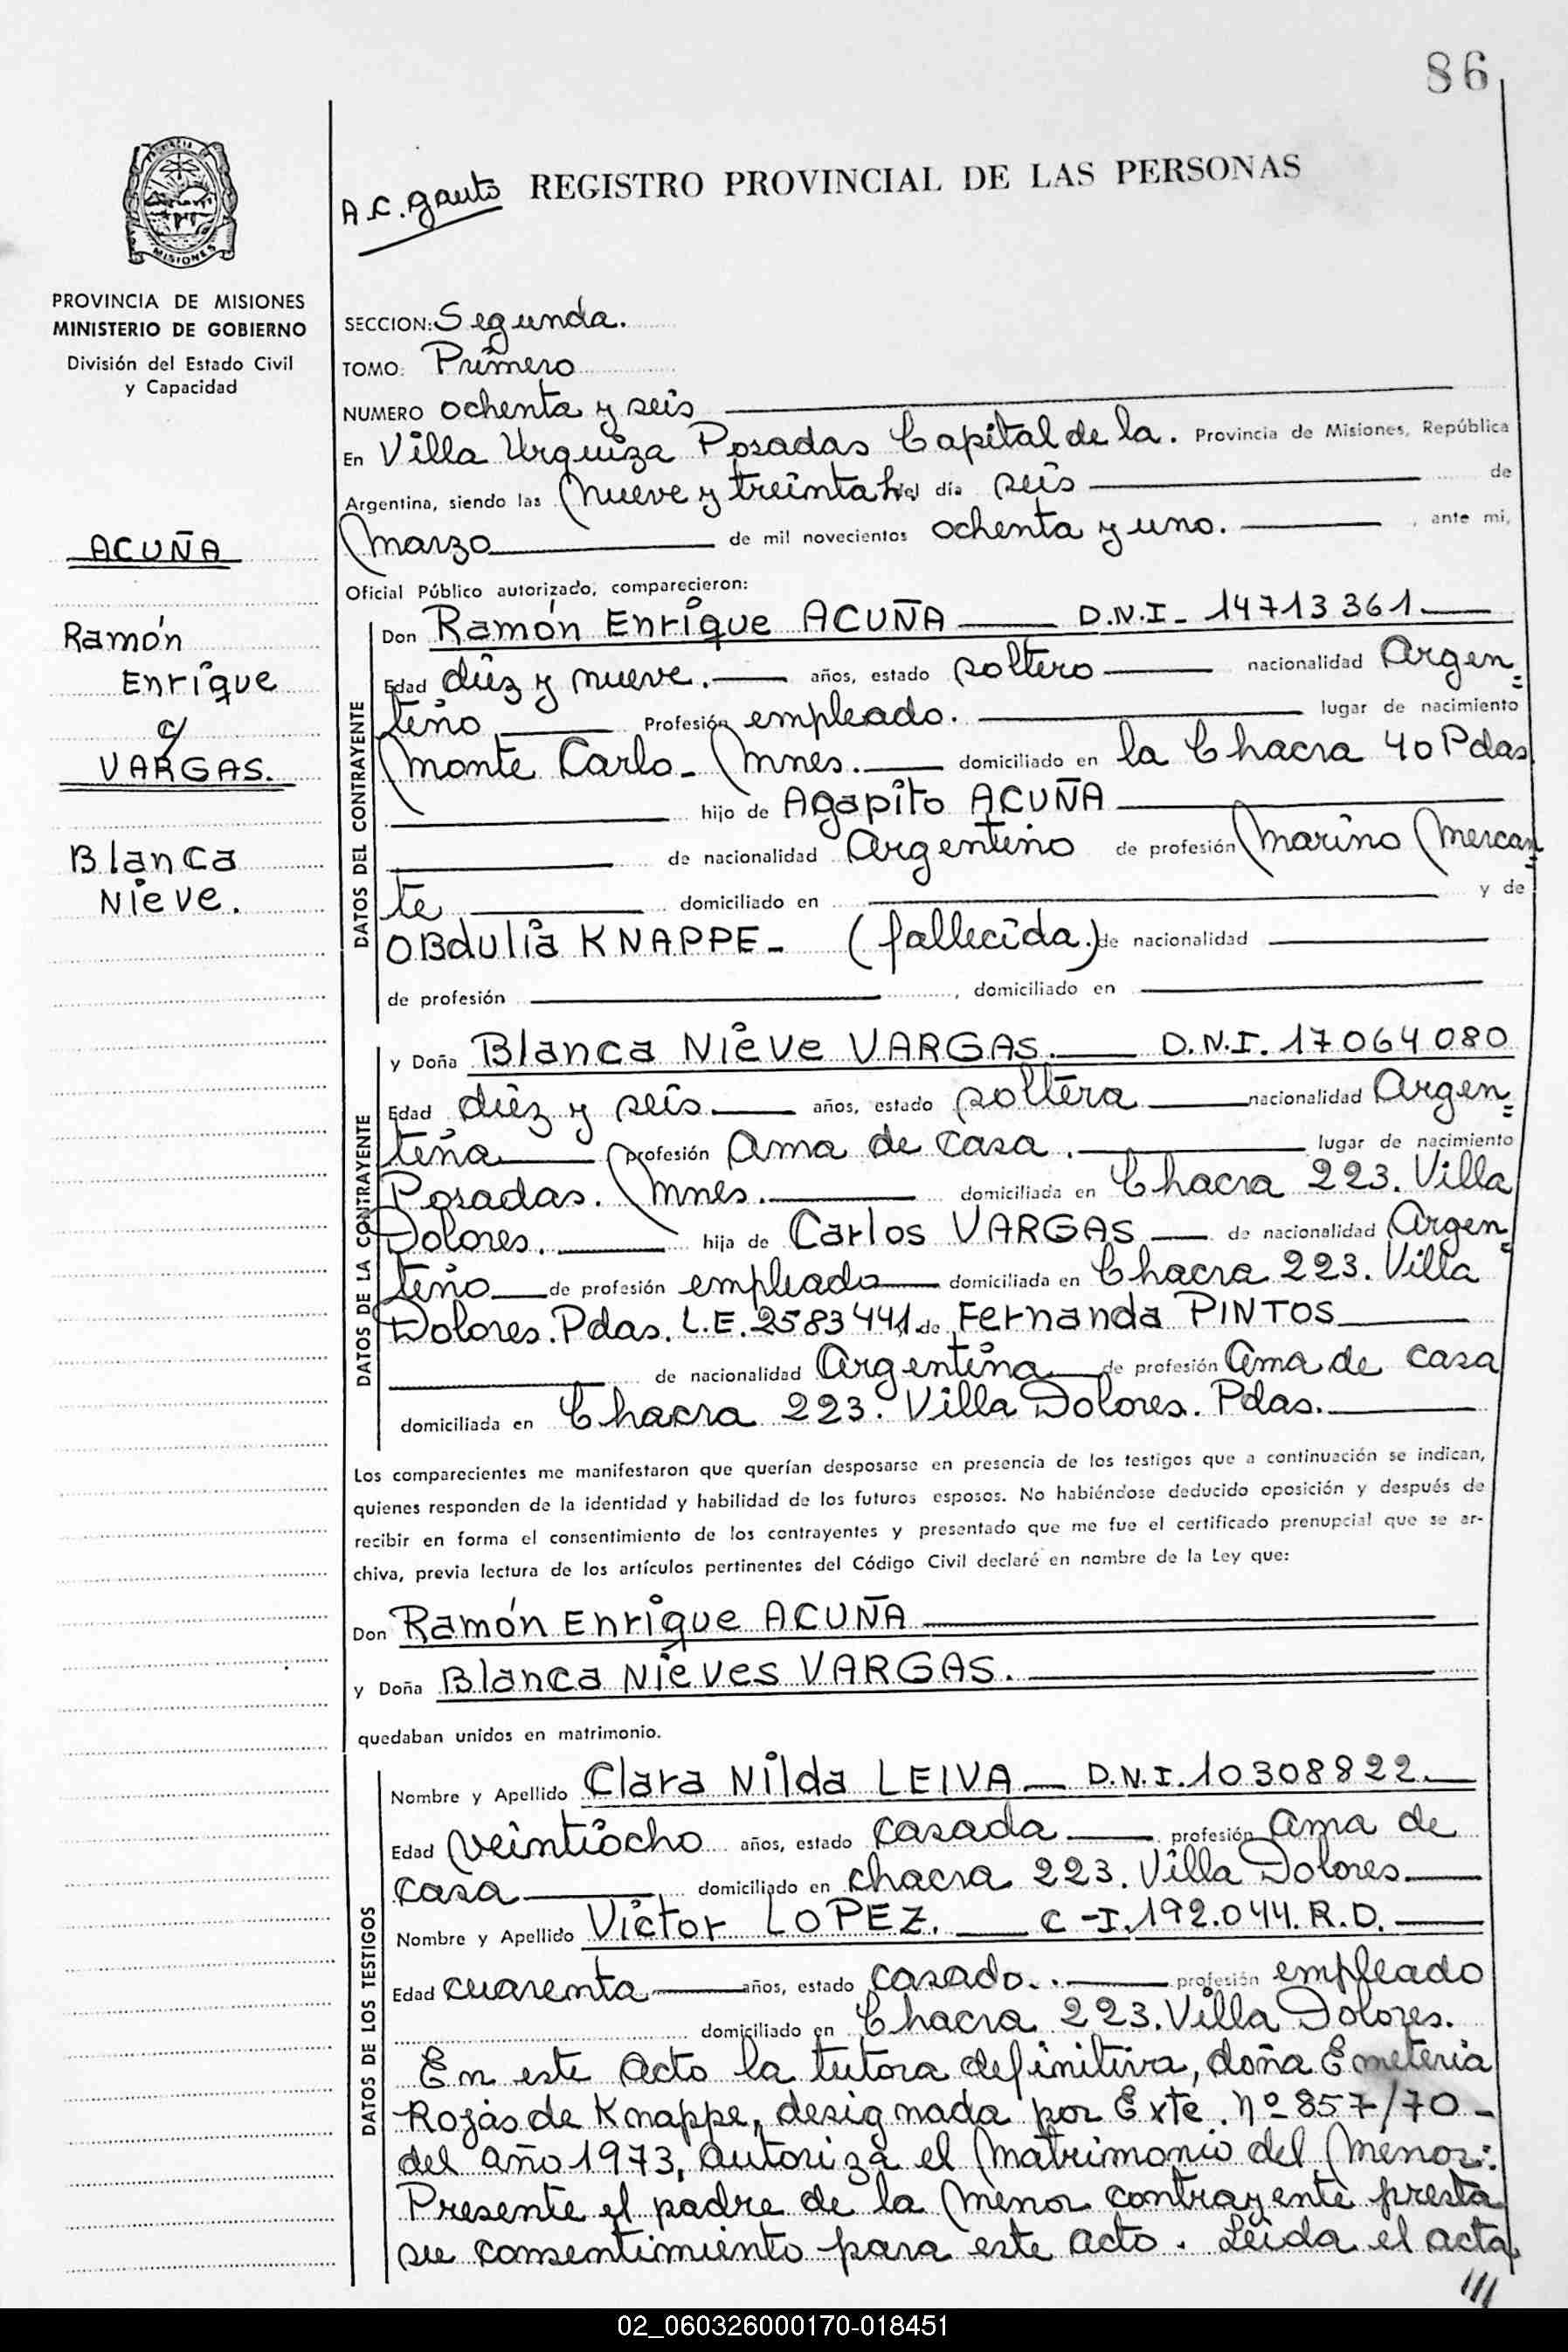 86
A.C. Gauto
REGISTRO PROVINCIAL DE LAS PERSONAS
MISIONES
PROVINCIA DE MISIONES
MINISTERIO DE GOBIERNO
División del Estado Civil
y Capacidad
ACUÑA
Ramón
Enrique
c/
VARGAS.
Blanca
Nieve.
SECCION: Segunda.
TOMO: Primero
NUMERO ochenta y seis
En Villa Urquiza Posadas Capital de la. Provincia de Misiones, República
Argentina, siendo las Nueve y treinta h. del día seis de
Marzo de mil novecientos ochenta y uno. , ante mi,
Oficial Público autorizado, comparecieron:
DATOS DEL CONTRAYENTE
Don Ramón Enrique ACUÑA D.N.I - 14713361.
Edad diez y nueve. años, estado soltero nacionalidad Argen=
tino Profesión empleado. lugar de nacimiento
Monte Carlo - Mnes. domiciliado en la Chacra 40 Pdas
hijo de Agapito ACUÑA
de nacionalidad Argentino de profesión Marino Mercan
te domiciliado en y de
OBdulia KNAPPE - (fallecida.) de nacionalidad
de profesión , domiciliado en
DATOS DE LA CONTRAYENTE
y Doña Blanca Nieve VARGAS. D.N.I. 17064080
Edad diez y seis años, estado soltera nacionalidad Argen=
tina profesión Ama de casa. lugar de nacimiento
Posadas. Mnes. domiciliada en Chacra 223. Villa
Dolores. hija de Carlos VARGAS de nacionalidad Argen=
tino de profesión empleado domiciliada en Chacra 223. Villa
Dolores. Pdas. L.E. 2583441 de Fernanda PINTOS
de nacionalidad Argentina de profesión Ama de casa
domiciliada en Chacra 223. Villa Dolores. Pdas.
Los comparecientes me manifestaron que querían desposarse en presencia de los testigos que a continuación se indican,
quienes responden de la identidad y habilidad de los futuros esposos. No habiéndose deducido oposición y después de
recibir en forma el consentimiento de los contrayentes y presentado que me fue el certificado prenupcial que se ar-
chiva, previa lectura de los artículos pertinentes del Código Civil declaré en nombre de la Ley que:
Don Ramón Enrique ACUÑA
y Doña Blanca Nieves VARGAS.
quedaban unidos en matrimonio.
DATOS DE LOS TESTIGOS
Nombre y Apellido Clara Nilda LEIVA D.N.I. 10308822.
Edad Veintiocho años, estado casada profesión Ama de
casa domiciliado en chacra 223. Villa Dolores.
Nombre y Apellido Víctor LOPEZ. C-I. 192.044. R.D.
Edad cuarenta años, estado casado. profesión empleado
domiciliado en Chacra 223. Villa Dolores.
En este Acto la tutora definitiva, doña Emeteria
Rojas de Knappe, designada por Exte. Nº 857/70 -
del año 1973, autoriza el Matrimonio del Menor:
Presente el padre de la Menor contrayente presta
su consentimiento para este acto. Leida el acta
///
02_060326000170-018451